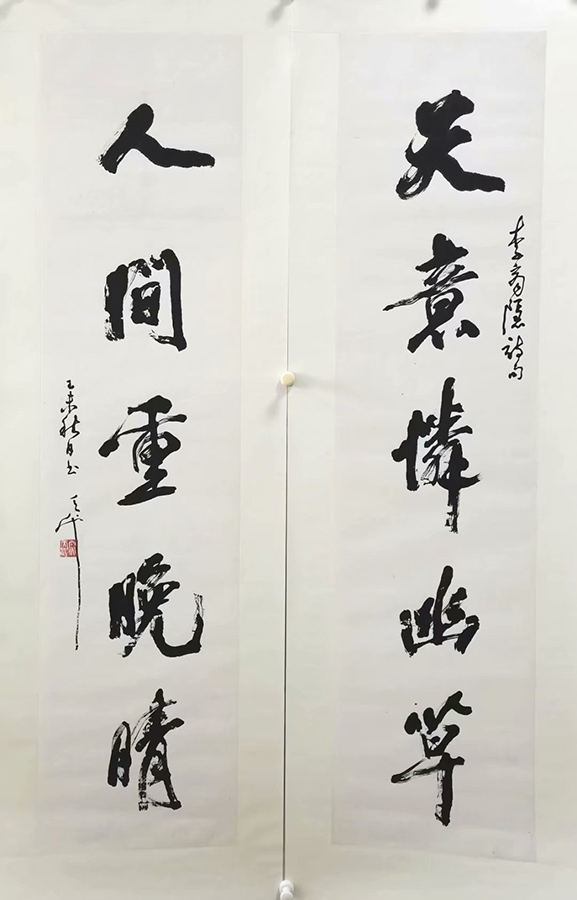 李商隱詩句
天意憐幽草
人間重晚晴
乙未秋日书